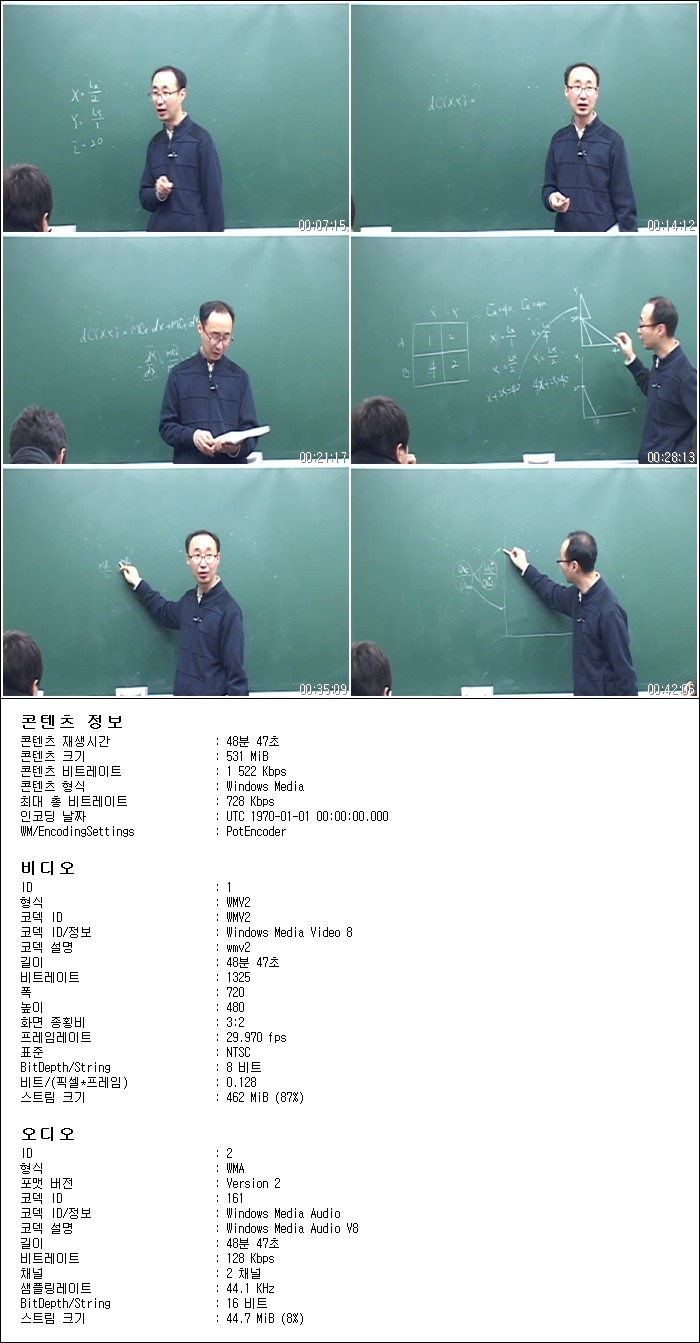 X = Lx/2
Y = Ly/1
L = 20
00:07:15
dC(X,Y) =
00:14:12
00:21:17
X Y
A 1 2
B 4 2
00:28:13
00:35:09
00:42:06
콘텐츠 정보
콘텐츠 재생시간 : 48분 47초
콘텐츠 크기 : 531 MiB
콘텐츠 비트레이트 : 1 522 Kbps
콘텐츠 형식 : Windows Media
최대 총 비트레이트 : 728 Kbps
인코딩 날짜 : UTC 1970-01-01 00:00:00.000
WM/EncodingSettings : PotEncoder
비디오
ID : 1
형식 : WMV2
코덱 ID : WMV2
코덱 ID/정보 : Windows Media Video 8
코덱 설명 : wmv2
길이 : 48분 47초
비트레이트 : 1325
폭 : 720
높이 : 480
화면 종횡비 : 3:2
프레임레이트 : 29.970 fps
표준 : NTSC
BitDepth/String : 8 비트
비트/(픽셀*프레임) : 0.128
스트림 크기 : 462 MiB (87%)
오디오
ID : 2
형식 : WMA
포맷 버전 : Version 2
코덱 ID : 161
코덱 ID/정보 : Windows Media Audio
코덱 설명 : Windows Media Audio V8
길이 : 48분 47초
비트레이트 : 128 Kbps
채널 : 2 채널
샘플링레이트 : 44.1 KHz
BitDepth/String : 16 비트
스트림 크기 : 44.7 MiB (8%)